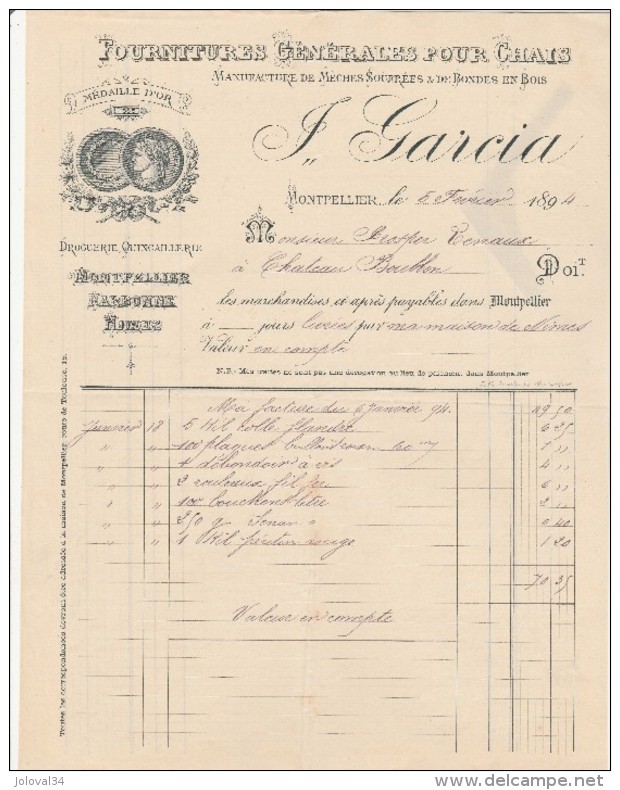 FOURNITURES GÉNÉRALES POUR CHAIS
MANUFACTURE DE MÈCHES SOUFRÉES & DE BONDES EN BOIS
MÉDAILLE D'OR
J. Garcia
MONTPELLIER, le 5 Février 1894
DROGUERIE QUINCAILLERIE
MONTPELLIER
NARBONNE
NIMES
Monsieur Prosper
à Chateau DOIT
les marchandises ci après payables dans Montpellier
à jours livrées par ma maison de Nimes
Valeur en compte
N.B.- Mes traites ne sont pas une dérogation au lieu de paiement, dans Montpellier
Ma facture du 6 Janvier 94. 49 50
Janvier 18 5 Kil colle flandre 6 25
" " 100 plaques 1 "
" " 1 débondoir à vis 4 "
" " 2 rouleaux fil fer 6 "
" " 100 2 "
" " 250 g 0 40
" " 1 Kil rouge 1 20
70 35
Valeur en compte
Toutes les correspondances devront être adressées à la maison de Montpellier, route de Toulouse, 15.
joloval34
www.delcampe.net